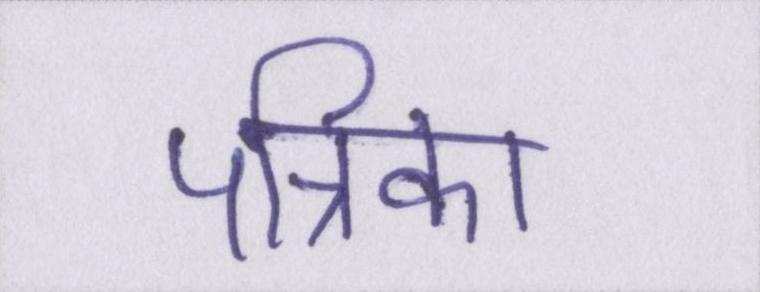 पत्रिका